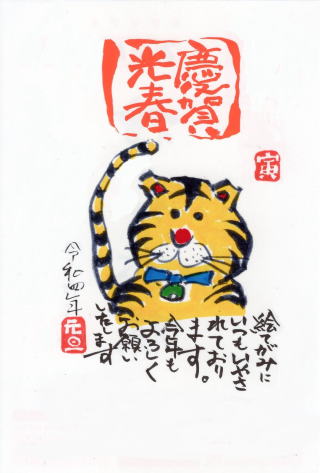 慶賀
光春
寅
絵てがみに
いつもいやさ
れており
ます。
今年も
よろしく
お願い
いたします
令和四年
元旦